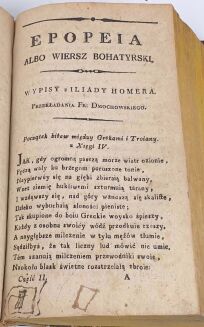 EPOPEIA
ALBO WIERSZ BOHATYRSKI,
WYPISY z ILIADY HOMERA.
PRZEKŁADANIA FR: DMOCHOWSKIEGO.
Początek bitew między Grekami i Troiany.
z Xięgi IV.
JAK, gdy ogromną paszczą morze wiatr ozionie,
Pędzą wały ku brzegom poruszone tonie,
Naypierwey się na głębi zbierał bałwany,
Wart ziemię hukliwemi roztrmnią tarany,
I wzdąwszy się, nad góry wznoszą się skaliste,
Daleko wybuchaią słoności pieniste;
Tak skupione do boiu Greckie woysko spieszy,
Każdy z osobna swoiéy wódz przodkuie rzeszy,
A naygłębsze milczenie w tyla mężów tłumie,
Sądziłbyś, że tak liczny lud mówić nie umie,
Tém szanuią milczeniem przewodniki swoie,
Naokoło blask świetne rozstrzelaią zbroie:
Część II. A